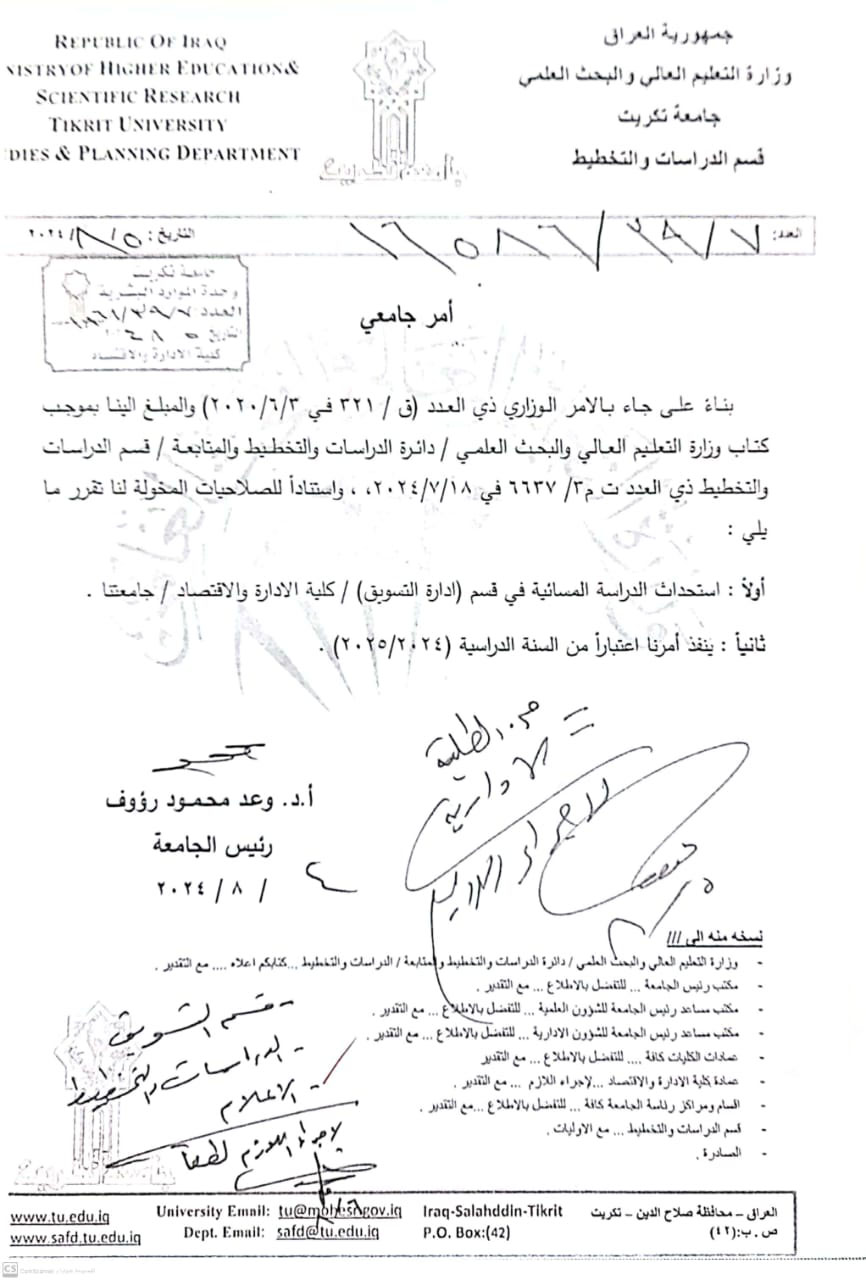 REPUBLIC OF IRAQ
NISTRYOF HIGHER EDUCATION&
SCIENTIFIC RESEARCH
TIKRIT UNIVERSITY
DIES & PLANNING DEPARTMENT
جمهورية العراق
وزارة التعليم العالي والبحث العلمي
جامعة تكريت
قسم الدراسات والتخطيط
العدد: ٧/ ٣٩/ ١٦٥٨٦
التاريخ: ٥/ ٨/ ٢٠٢٤
جامعة تكريت
وحدة الموارد البشرية
العدد
التاريخ
كلية الادارة والاقتصاد
أمر جامعي
بناءً على جاء بالامر الوزاري ذي العدد (ق / ٣٢١ في ٢٠٢٠/٦/٣) والمبلغ الينا بموجب
كتاب وزارة التعليم العالي والبحث العلمي / دائرة الدراسات والتخطيط والمتابعة / قسم الدراسات
والتخطيط ذي العدد ت م٣/ ٦٦٣٧ في ٢٠٢٤/٧/١٨، ، واستناداً للصلاحيات المخولة لنا تقرر ما
يلي :
أولاً : استحداث الدراسة المسائية في قسم (ادارة التسويق) / كلية الادارة والاقتصاد / جامعتنا .
ثانياً : ينفذ أمرنا اعتباراً من السنة الدراسية (٢٠٢٥/٢٠٢٤) .
أ.د. وعد محمود رؤوف
رئيس الجامعة
٤ / ٨ / ٢٠٢٤
الادارية
٥/٨
نسخه منه الى ///
- وزارة التعليم العالي والبحث العلمي / دائرة الدراسات والتخطيط والمتابعة / الدراسات والتخطيط ...كتابكم اعلاه .... مع التقدير .
- مكتب رئيس الجامعة ... للتفضل بالاطلاع ... مع التقدير .
- مكتب مساعد رئيس الجامعة للشؤون العلمية ... للتفضل بالاطلاع ... مع التقدير .
- مكتب مساعد رئيس الجامعة للشؤون الادارية ... للتفضل بالاطلاع ... مع التقدير .
- عمادات الكليات كافة .... للتفضل بالاطلاع ... مع التقدير
- عمادة كلية الادارة والاقتصاد ...لاجراء اللازم ... مع التقدير .
- اقسام ومراكز رئاسة الجامعة كافة ... للتفضل بالاطلاع ...مع التقدير .
- قسم الدراسات والتخطيط ... مع الاوليات .
- الصادرة .
- قسم التسويق
- الدراسات والتخطيط
- الاعلام
لاجراء اللازم لطفاً
www.tu.edu.iq
www.safd.tu.edu.iq
University Email: tu@mohesr.gov.iq
Dept. Email: safd@tu.edu.iq
Iraq-Salahddin-Tikrit
P.O. Box:(42)
العراق – محافظة صلاح الدين – تكريت
ص . ب:(٤٢)
CS CamScanner